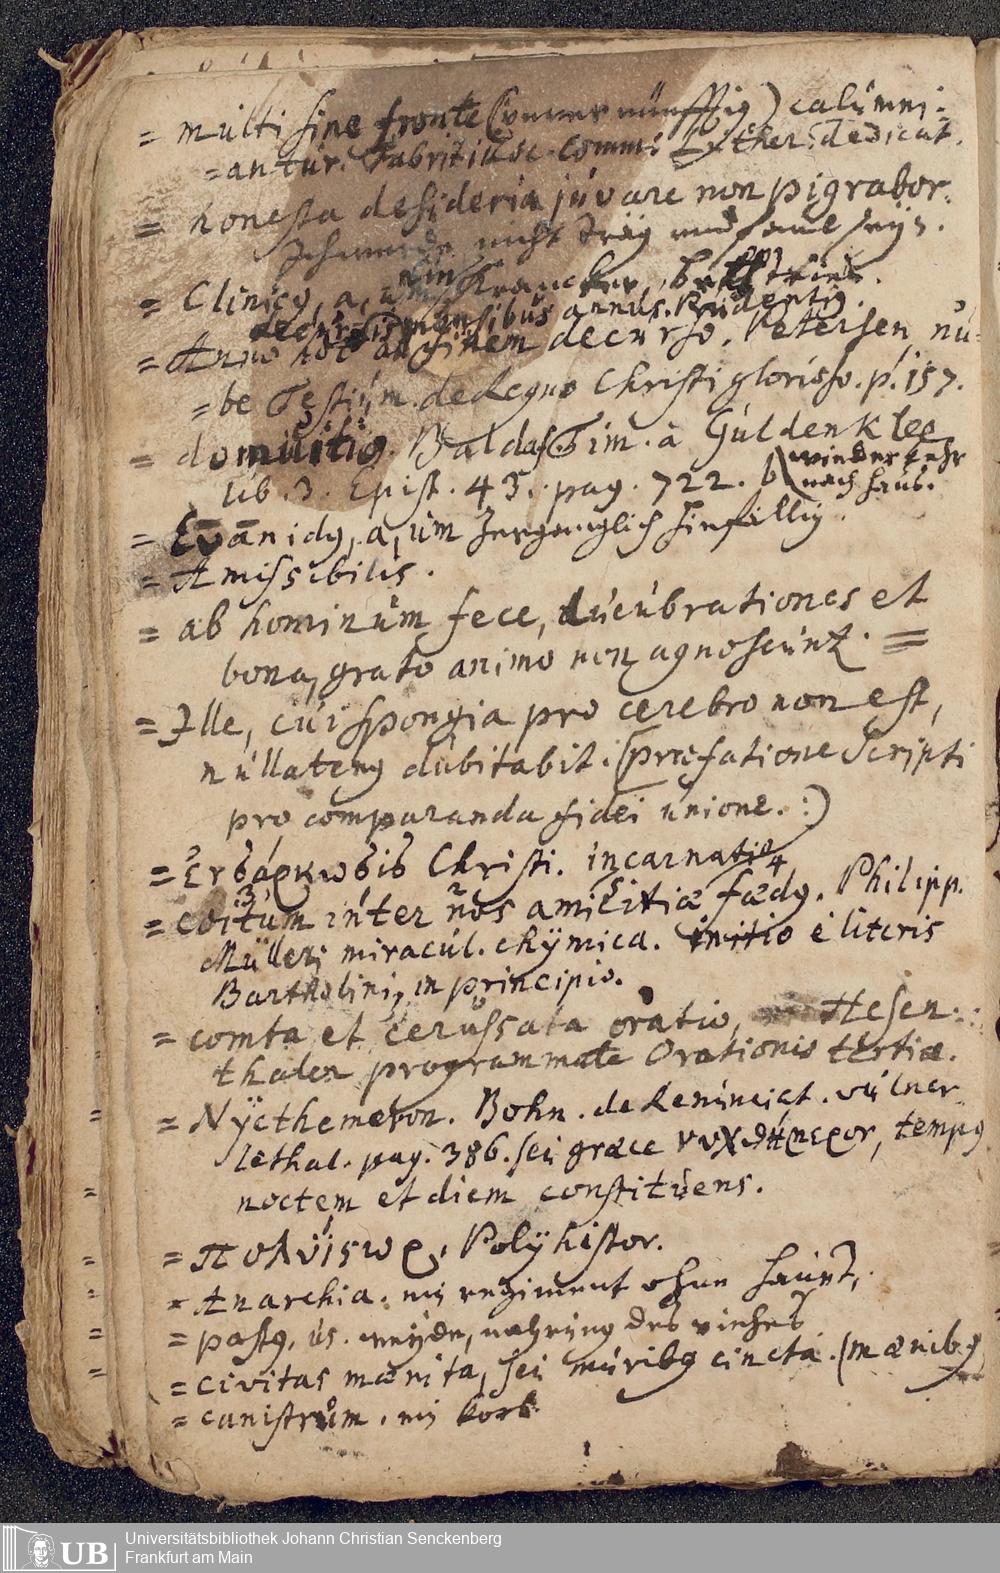 = multi sine fronte (unvernünfftig) calumni-
= antur. Fabritius c. comm. Luther. dedicat.
= honesta desideria juvare non pigrabor.
Ich werde nicht träg und faul seyn.
= Clinicus, a, um ein Krancker, bettrieß.
decursis mensibus annus. Prudentius.
= Anno hoc ad finem decurso. Petersen nu-
= be Testium. de Regno Christi glorioso. p. 157.
= domuitio. Baldas. Tim. à Güldenklee
lib. 3. Epist. 43. pag. 722. b wiederkehr
nach hauß.
= Evanidus, a, um Zergänglich hinfällig.
= Amissibilis.
= ab hominum fece, lucubrationes et
bona, grato animo non agnoscunt. =
= Ille, cui spongia pro cerebro non est,
nullatenus dubitabit. (præfatione Scripti
pro comparanda fidei unione. :)
= Ενσάρκωσις Christi. incarnatio
= coitum inter nos amicitiæ fœdus. Philipp.
Mülleri miracul. chÿmica. initio è literis
Bartholini, in principio.
= comta et cerussata oratio, Hesen-
thaler programmate Orationis tertiæ.
= Nÿcthemeron. Bohn. de Renunciat. vulner.
lethal. pag. 386. seu græce νυχθήμερον, tempus
noctem et diem constituens.
= πολυίςωρ, Polÿhistor.
= Anarchia. ein regiment ohne haupt,
= pastus, us. weyde, nahrung des viehes
= civitas mœnita, seu muribus cincta. (mœnibus)
= canistrum. ein korb
Universitätsbibliothek Johann Christian Senckenberg
Frankfurt am Main
UB